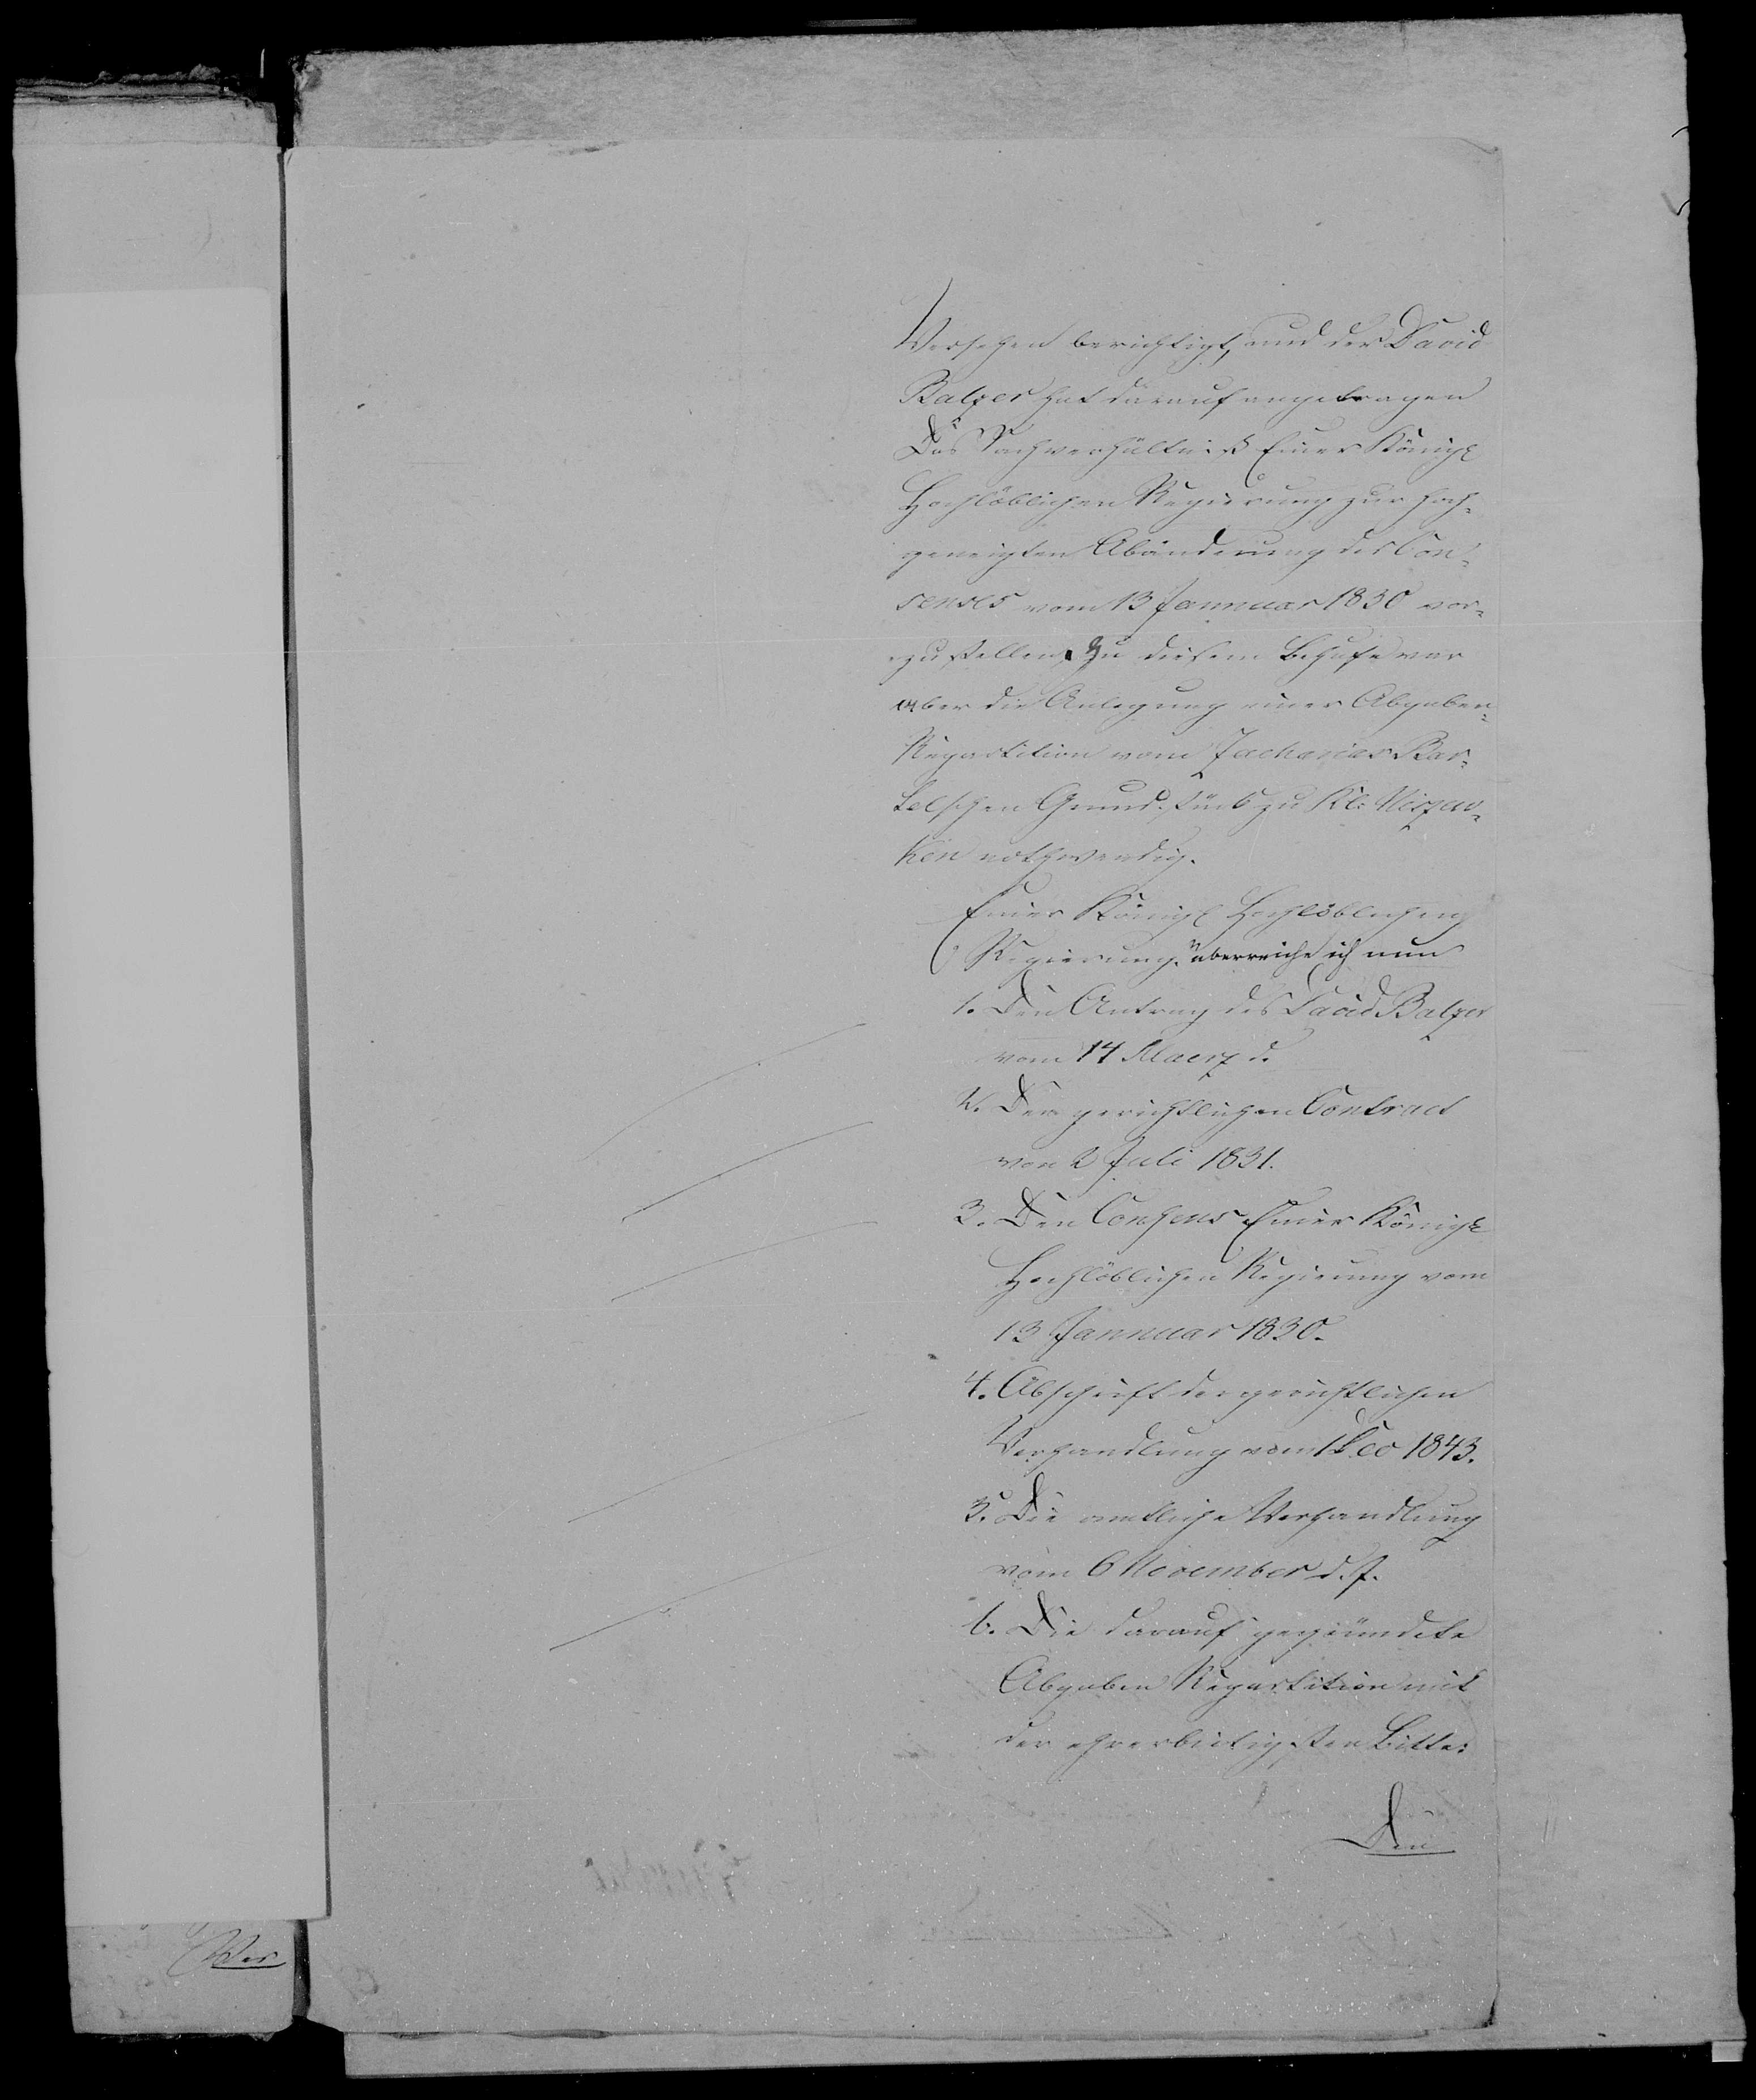 Versehen berichtigt, und der David
Balzer hat darauf angetragen
Das Sachverhältniß Einer Königl
Hochlöblichen Regierung zur hoch-
geneigten Abänderung des Con-
senses vom 13 Jannuar 1830 vor-
zustellen. Zu diesem Behufe war
aber die Anlegung einer Abgaben-
Repartition vom Zacharias Bar-
telschen Grundstück zu Kl: Niszew-
ken nothwendig.
Einer Königl Hochlöblichen
Regierung überreiche ich nun
1. Den Antrag des David Balzer
vom 14 Maerz d.
2. Den gerichtlichen Contract
von 2 Juli 1831.
3. Den Consens Einer Königl
Hochlöblichen Regierung vom
13 Jannuar 1830.
4. Abschrift der gerichtlichen
Verhandlung vom 1 1843.
5. Die amtliche Verhandlung
vom 6 November d. J.
6. Die darauf gegründete
Abgaben Repartition mit
der ehrerbietigsten Bitte:
Den
Ver